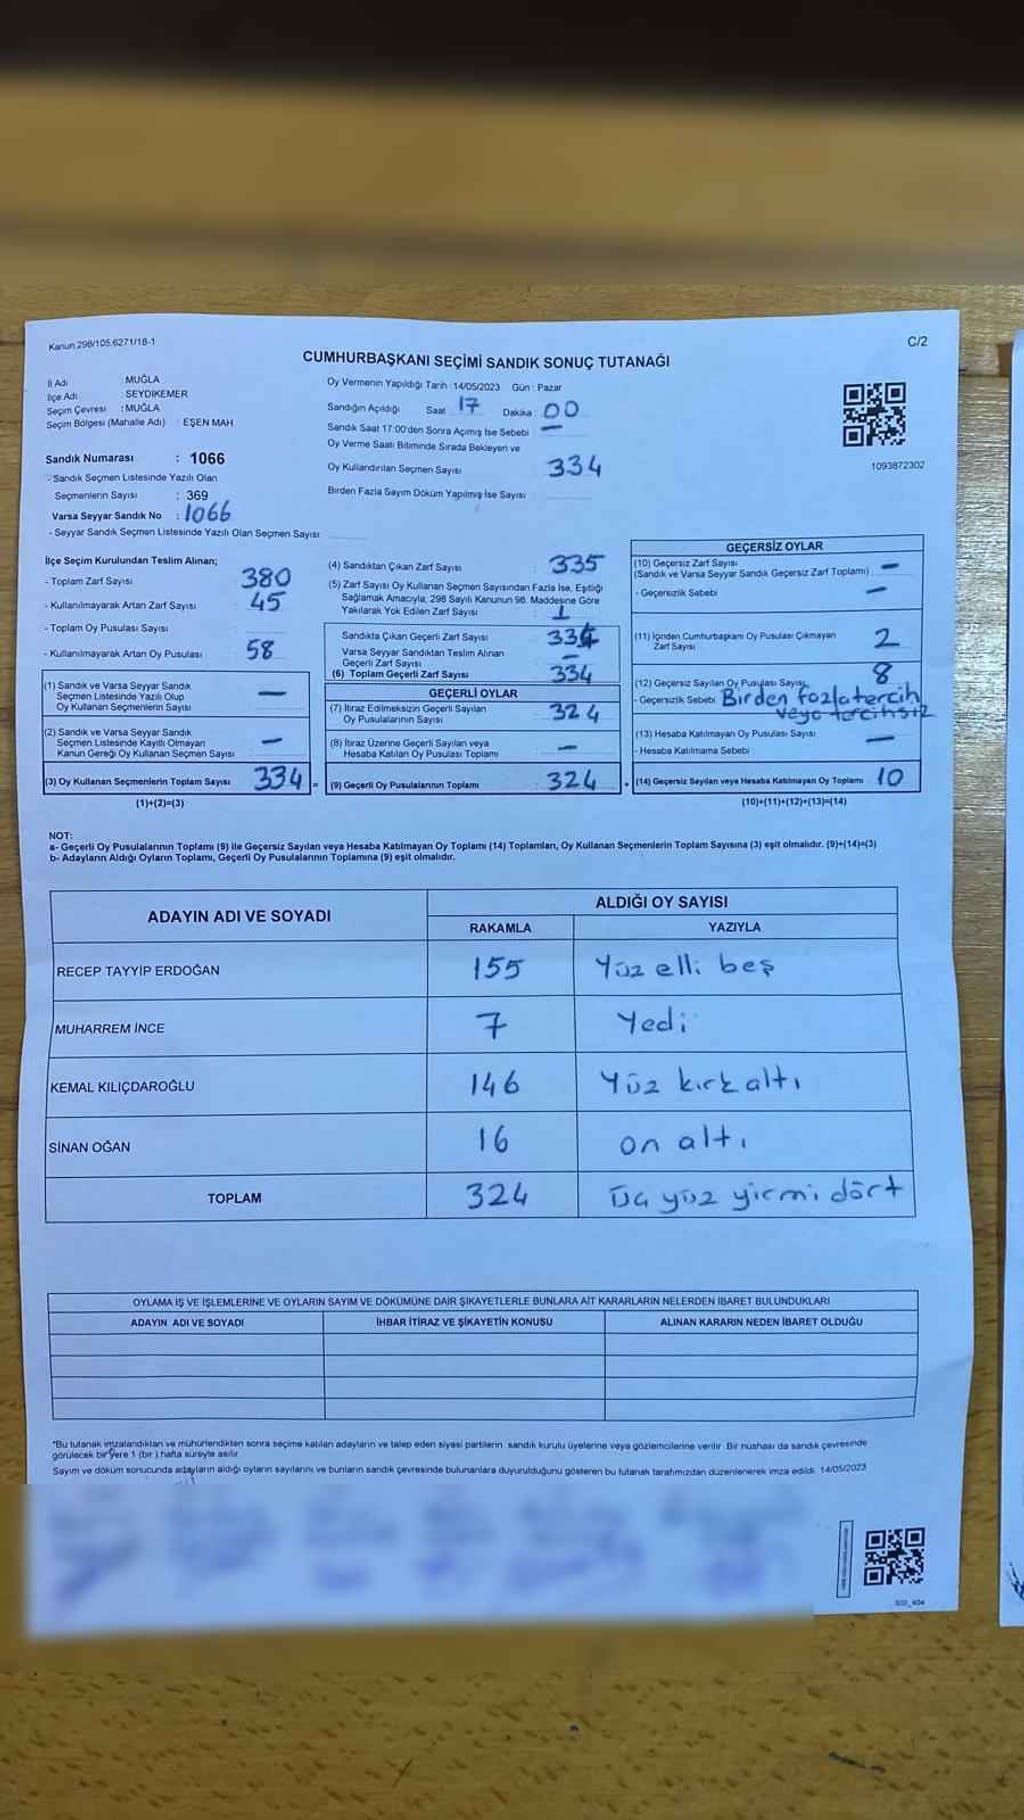 Kanun 298/105.6271/18-1
C/2
CUMHURBAŞKANI SEÇİMİ SANDIK SONUÇ TUTANAĞI
İl Adı : MUĞLA
İlçe Adı : SEYDİKEMER
Seçim Çevresi : MUĞLA
Seçim Bölgesi (Mahalle Adı) : EŞEN MAH
Sandık Numarası : 1066
- Sandık Seçmen Listesinde Yazılı Olan
Seçmenlerin Sayısı : 369
Varsa Seyyar Sandık No : 1066
- Seyyar Sandık Seçmen Listesinde Yazılı Olan Seçmen Sayısı
Oy Vermenin Yapıldığı Tarih : 14/05/2023 Gün : Pazar
Sandığın Açıldığı Saat 17 Dakika : 00
Sandık Saat 17:00'den Sonra Açımış İse Sebebi —
Oy Verme Saati Bitiminde Sırada Bekleyen ve
Oy Kullandırılan Seçmen Sayısı 334
Birden Fazla Sayım Döküm Yapılmış İse Sayısı
1093872302
İlçe Seçim Kurulundan Teslim Alınan;
- Toplam Zarf Sayısı 380
- Kullanılmayarak Artan Zarf Sayısı 45
- Toplam Oy Pusulası Sayısı
- Kullanılmayarak Artan Oy Pusulası 58
(1) Sandık ve Varsa Seyyar Sandık
Seçmen Listesinde Yazılı Olup
Oy Kullanan Seçmenlerin Sayısı —
(2) Sandık ve Varsa Seyyar Sandık
Seçmen Listesinde Kayıtlı Olmayan
Kanun Gereği Oy Kullanan Seçmen Sayısı —
(3) Oy Kullanan Seçmenlerin Toplam Sayısı 334 =
(1)+(2)=(3)
(4) Sandıktan Çıkan Zarf Sayısı 335
(5) Zarf Sayısı Oy Kullanan Seçmen Sayısından Fazla İse, Eşitliği
Sağlamak Amacıyla, 298 Sayılı Kanunun 98. Maddesine Göre
Yakılarak Yok Edilen Zarf Sayısı 1
Sandıkta Çıkan Geçerli Zarf Sayısı 334
Varsa Seyyar Sandıktan Teslim Alınan
Geçerli Zarf Sayısı —
(6) Toplam Geçerli Zarf Sayısı 334
GEÇERLİ OYLAR
(7) İtiraz Edilmeksizin Geçerli Sayılan
Oy Pusulalarının Sayısı 324
(8) İtiraz Üzerine Geçerli Sayılan veya
Hesaba Katılan Oy Pusulası Toplamı —
(9) Geçerli Oy Pusulalarının Toplamı 324 +
GEÇERSİZ OYLAR
(10) Geçersiz Zarf Sayısı
(Sandık ve Varsa Seyyar Sandık Geçersiz Zarf Toplamı) —
- Geçersizlik Sebebi —
(11) İçinden Cumhurbaşkanı Oy Pusulası Çıkmayan
Zarf Sayısı 2
(12) Geçersiz Sayılan Oy Pusulası Sayısı 8
- Geçersizlik Sebebi Birden fazla tercih
veya tercihsiz
(13) Hesaba Katılmayan Oy Pusulası Sayısı
- Hesaba Katılmama Sebebi —
(14) Geçersiz Sayılan veya Hesaba Katılmayan Oy Toplamı 10
(10)+(11)+(12)+(13)=(14)
NOT:
a- Geçerli Oy Pusulalarının Toplamı (9) ile Geçersiz Sayılan veya Hesaba Katılmayan Oy Toplamı (14) Toplamları, Oy Kullanan Seçmenlerin Toplam Sayısına (3) eşit olmalıdır. (9)+(14)=(3)
b- Adayların Aldığı Oyların Toplamı, Geçerli Oy Pusulalarının Toplamına (9) eşit olmalıdır.
ADAYIN ADI VE SOYADI
ALDIĞI OY SAYISI
RAKAMLA YAZIYLA
RECEP TAYYİP ERDOĞAN 155 Yüz elli beş
MUHARREM İNCE 7 Yedi
KEMAL KILIÇDAROĞLU 146 Yüz kırk altı
SİNAN OĞAN 16 on altı
TOPLAM 324 Üç yüz yirmi dört
OYLAMA İŞ VE İŞLEMLERİNE VE OYLARIN SAYIM VE DÖKÜMÜNE DAİR ŞİKAYETLERLE BUNLARA AİT KARARLARIN NELERDEN İBARET BULUNDUKLARI
ADAYIN ADI VE SOYADI İHBAR İTİRAZ VE ŞİKAYETİN KONUSU ALINAN KARARIN NEDEN İBARET OLDUĞU
*Bu tutanak imzalandıktan ve mühürlendikten sonra seçime katılan adayların ve talep eden siyasi partilerin sandık kurulu üyelerine veya gözlemcilerine verilir. Bir nushası da sandık çevresinde
görülecek bir yere 1 (bir) hafta süreyle asılır.
Sayım ve döküm sonucunda adayların aldığı oyların sayılarını ve bunların sandık çevresinde bulunanlara duyurulduğunu gösteren bu tutanak tarafımızdan düzenlenerek imza edildi. 14/05/2023